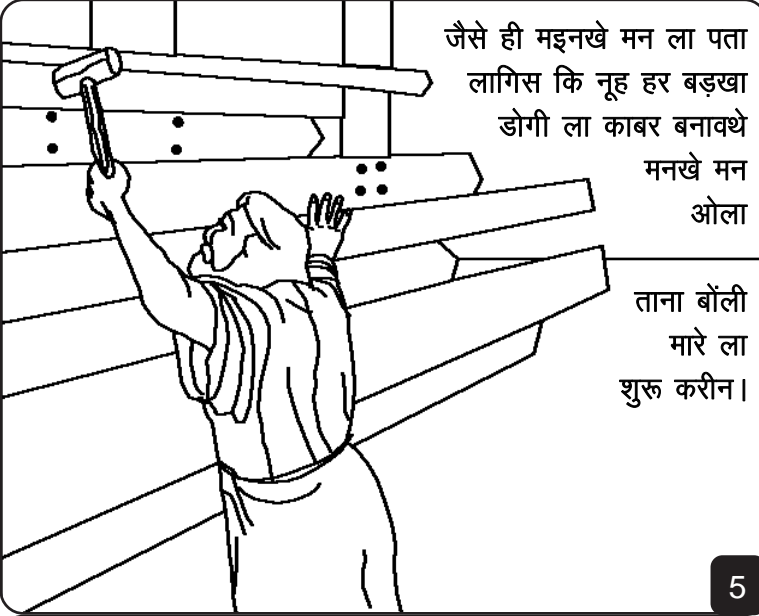 जैसे ही मइनखे मन ला पता
लागिस कि नूह हर बड़खा
डोगी ला काबर बनावथे
मनखे मन
ओला
ताना बोंली
मारे ला
शुरू करीन।
5